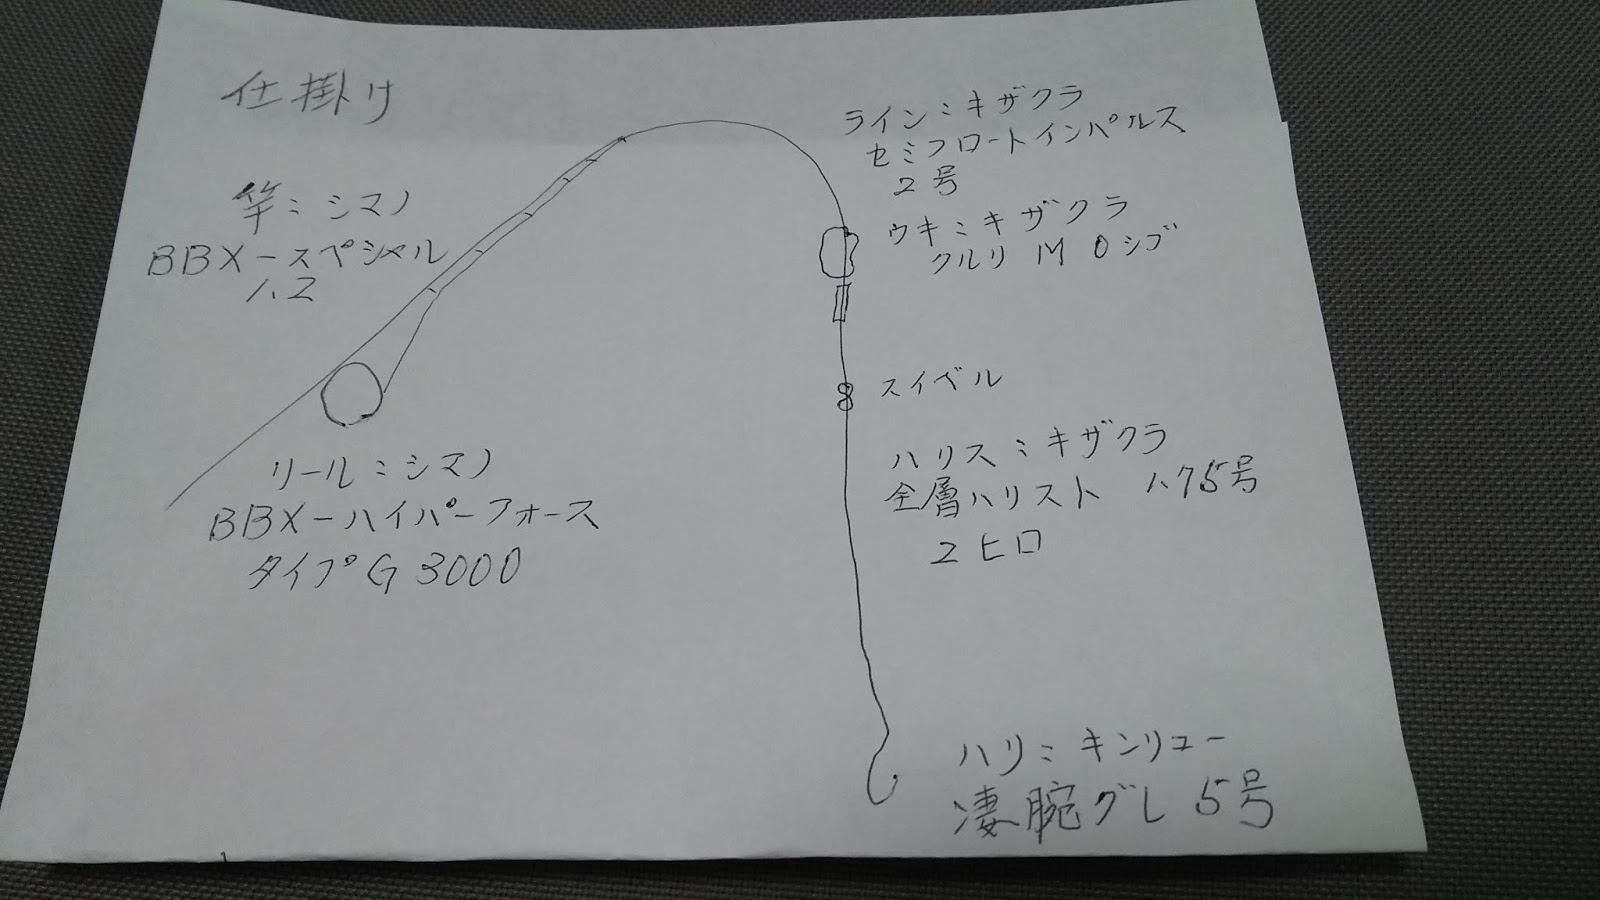 仕掛け
竿:シマノ
BBX-スペシャル
1.2
リール:シマノ
BBX-ハイパーフォース
タイプG 3000
ライン:キザクラ
セミフロートインパルス
2号
ウキ:キザクラ
クルリ M 0シブ
スイベル
ハリス:キザクラ
全層ハリスト 1.75号
2ヒロ
ハリ:キンリュー
凄腕グレ 5号